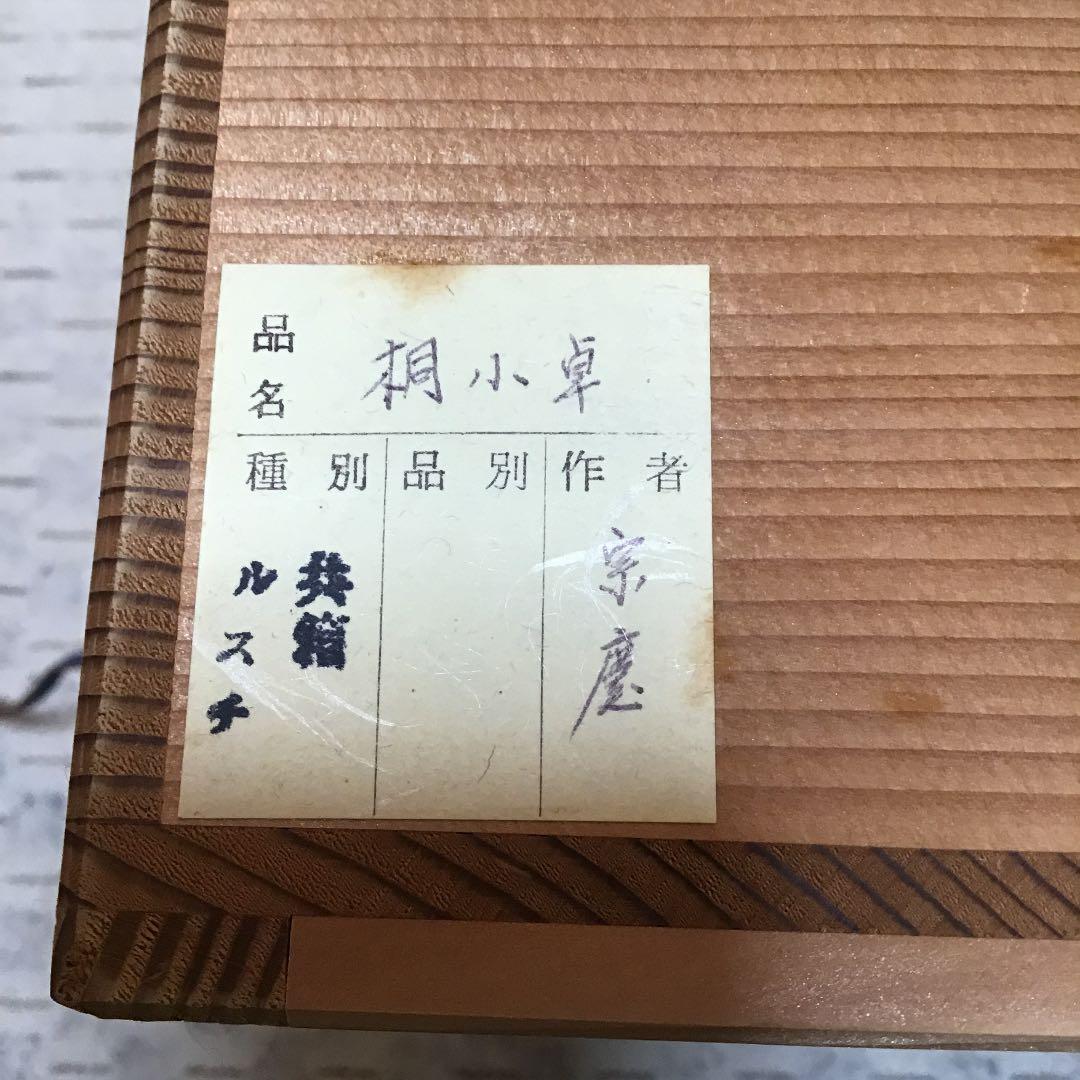 品名
桐小卓
種別
品別
作者
共箱
ルスチ
宗慶